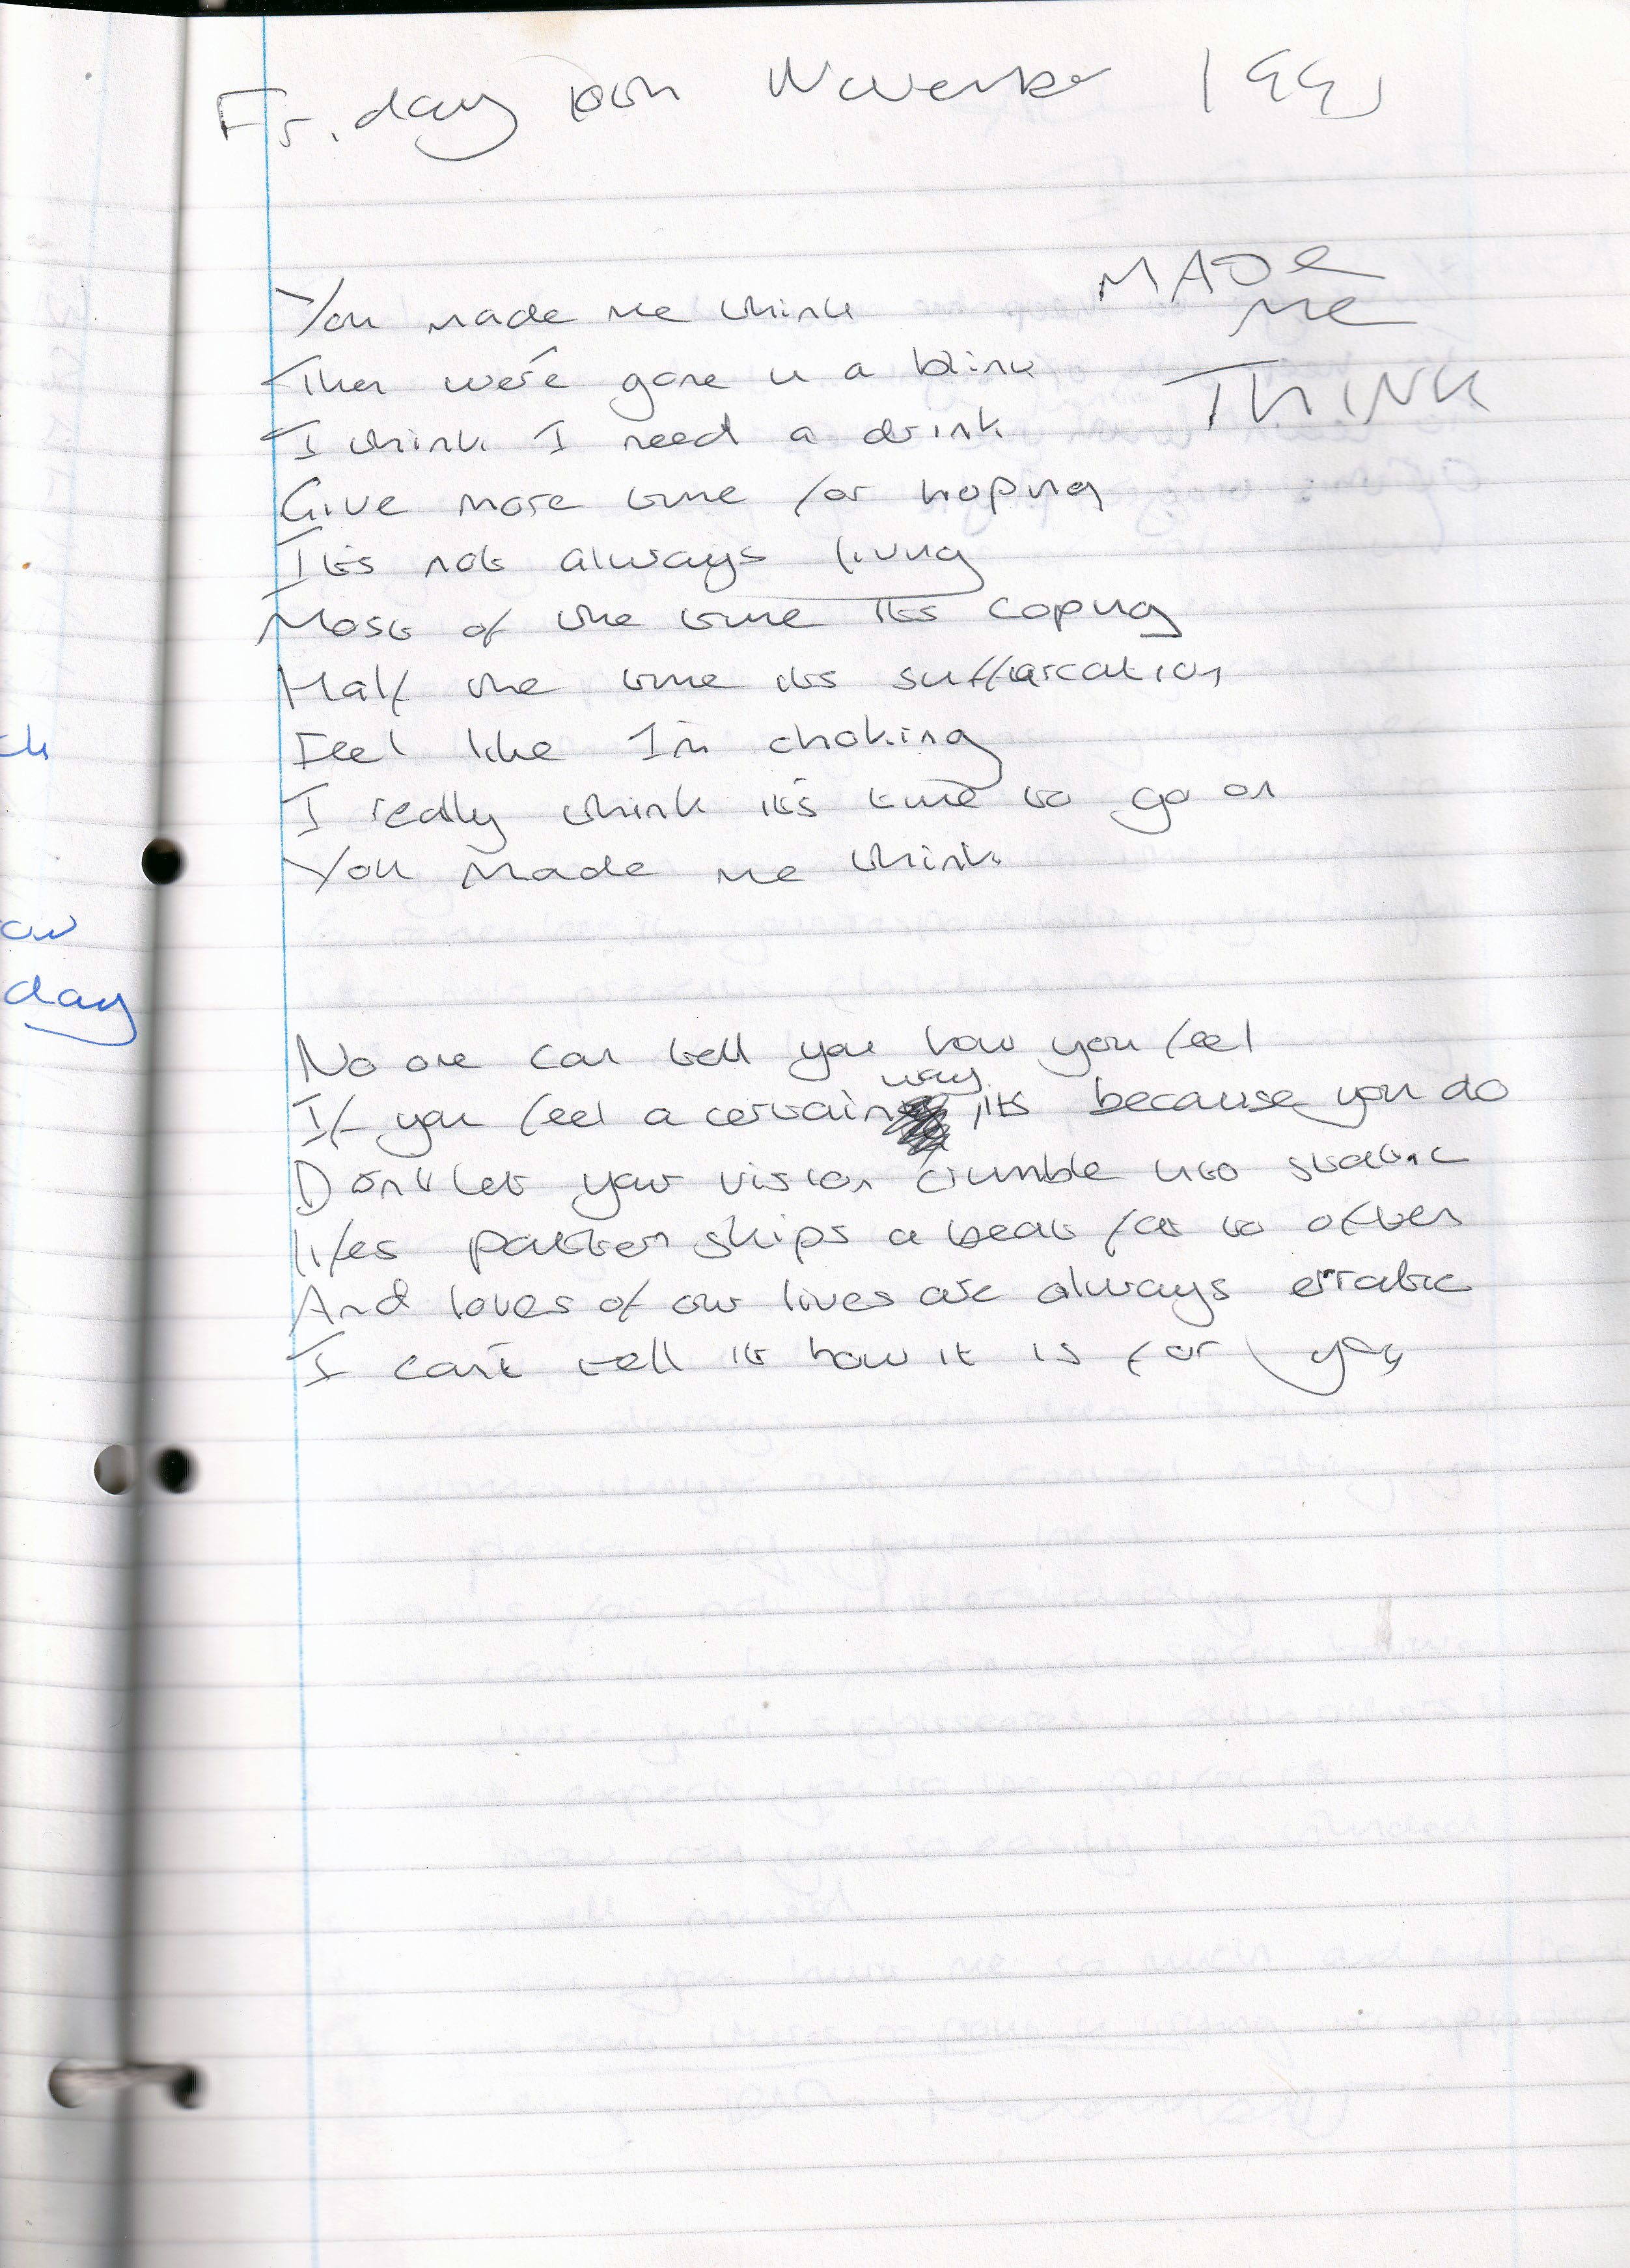 Friday 10th November 1995
MADe
Me
THINK
You made me think
Then we're gone in a blink
I think I need a drink
Give more time for hoping
It's not always living
Most of the time its coping
Half the time its suffarcation
Feel like I'm choking
I really think it's time to go on
You made me think
No one can tell you how you feel
If you feel a certain way its because you do
Don't let your vision crumble into static
lifes pattern skips a beat far to often
And loves of our lives are always erratic
I can't tell it how it is for you
ow
day